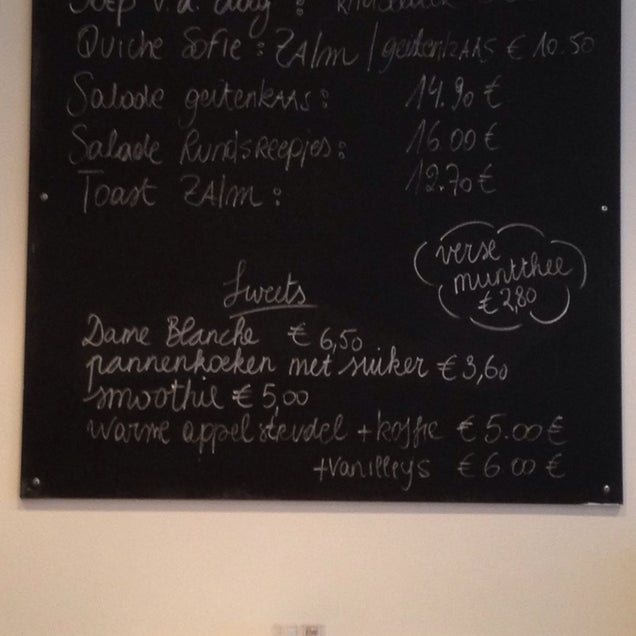 Soep v.d. dag :
Quiche Sofie : ZAlm / geitenkAAS € 10.50
Salade geitenkAAs : 14.90 €
Salade Rundsreepjes : 16.00 €
Toast ZAlm : 12.70 €
verse
muntthee
€ 2,80
Sweets
Dame Blanche € 6,50
pannenkoeken met suiker € 3,60
smoothie € 5,00
warme appelstrudel + koffie € 5.00 €
+ vanilleijs € 6 00 €